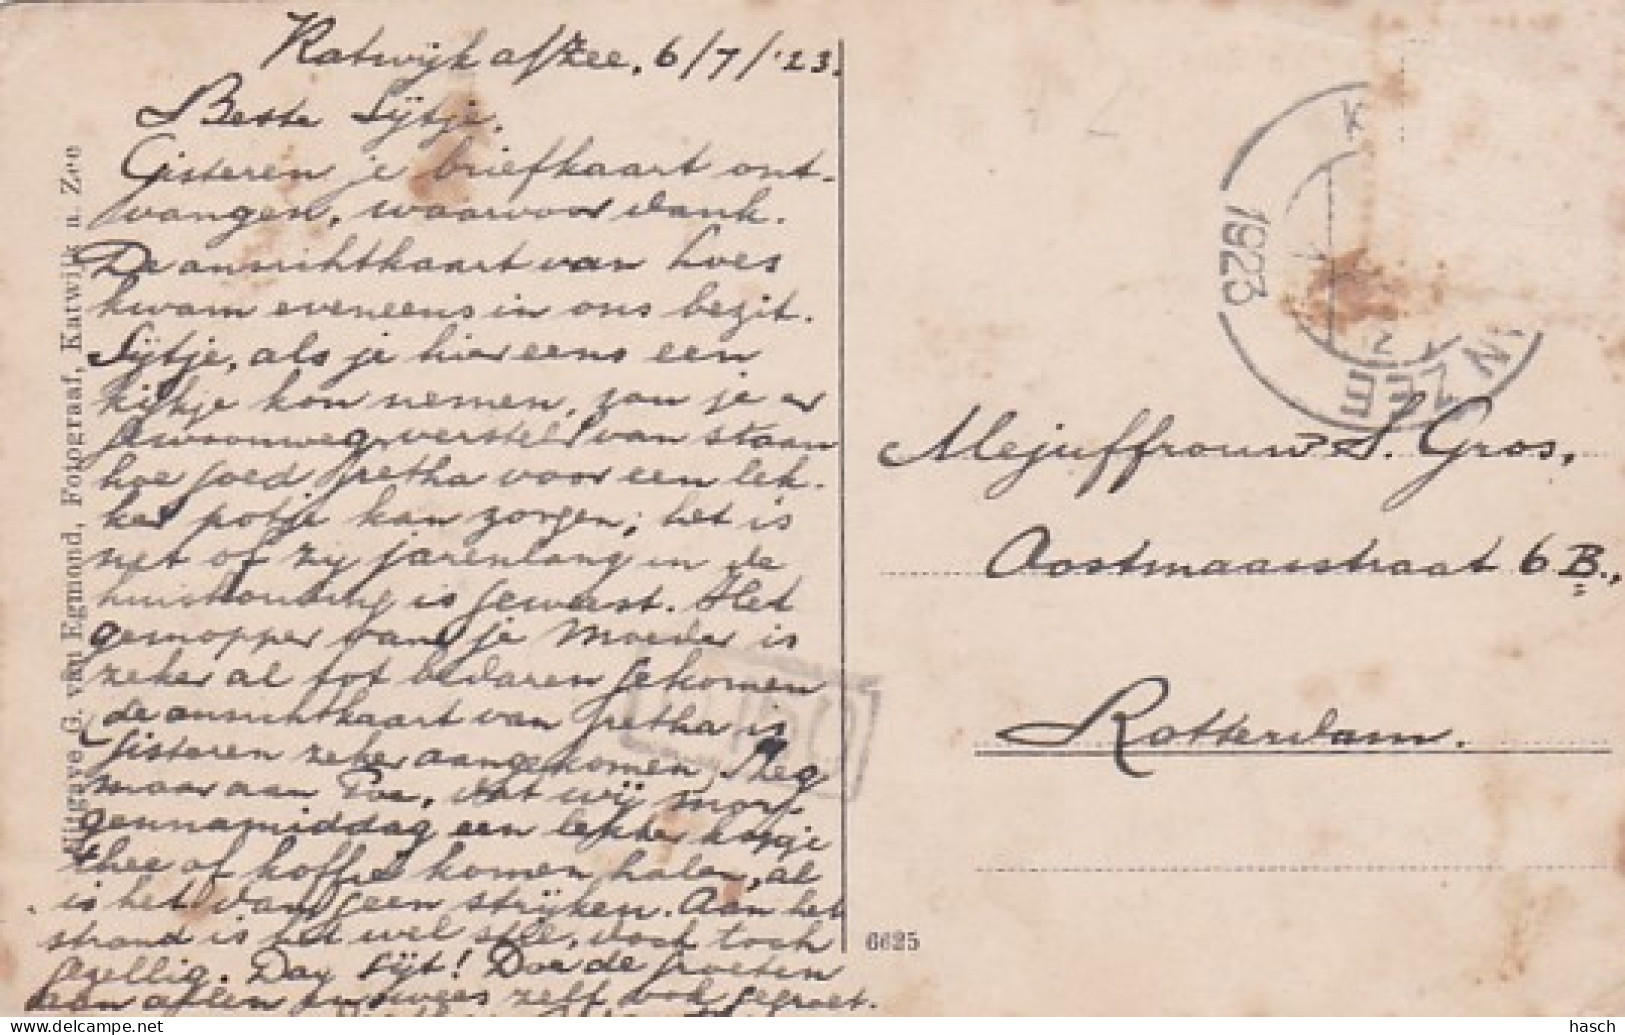 Katwijk a/Zee. 6/7/'23.
Beste Sÿtje.
Gisteren je briefkaart ont-
vangen, waarvoor dank.
De ansichtkaart van Loes
kwam eveneens in ons bezit.
Sÿtje, als je hier eens een
kijkje kon nemen, zou je er
gewoonweg versteld van staan
hoe goed Gretha voor een lek-
ker potje kan zorgen; het is
net of zy jarenlang in de
huishouding is geweest. Het
gemopper van je Moeder is
zeker al tot bedaren gekomen
de ansichtkaart van Gretha is
gisteren zeker aangekomen, Zeg
maar aan Moe, dat wÿ mor-
gennamiddag een lekker kopje
thee of koffie komen halen, al
is het dan geen strijken. Aan het
strand is het wel stil, doch toch
gezellig. Dag Sÿt! Doe de groeten
aan allen en wees zelf ook gegroet.
Uitgave G. van Egmond, Fotograaf, Katwijk a. Zee
6625
K N ZEE
1923
Mejuffrouw S. Gros,
Oostmaasstraat 6 B.,
Rotterdam.
hasch
© www.delcampe.net